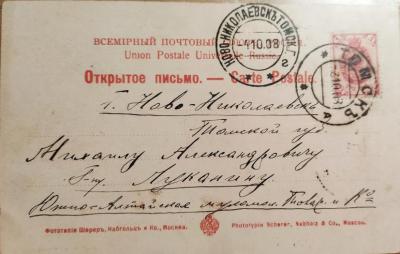 НОВО-НИКОЛАЕВСКЪ ТОМСК. Г.
-4.10.08
2
ВСЕМІРНЫЙ ПОЧТОВЫЙ
Union Postale Universelle Russie.
ТОМСКЪ
Открытое письмо. — Carte Postale.
г. Ново-Николаевскъ
Томской губ.
Михаилу Александровичу
Г-ну Луканину
Южно-Алтайская мукомол. Товар. и Ко
Фототипія Шереръ, Набгольцъ и Ко., Москва.
Phototypie Scherer, Nabholz & Co., Moscou.